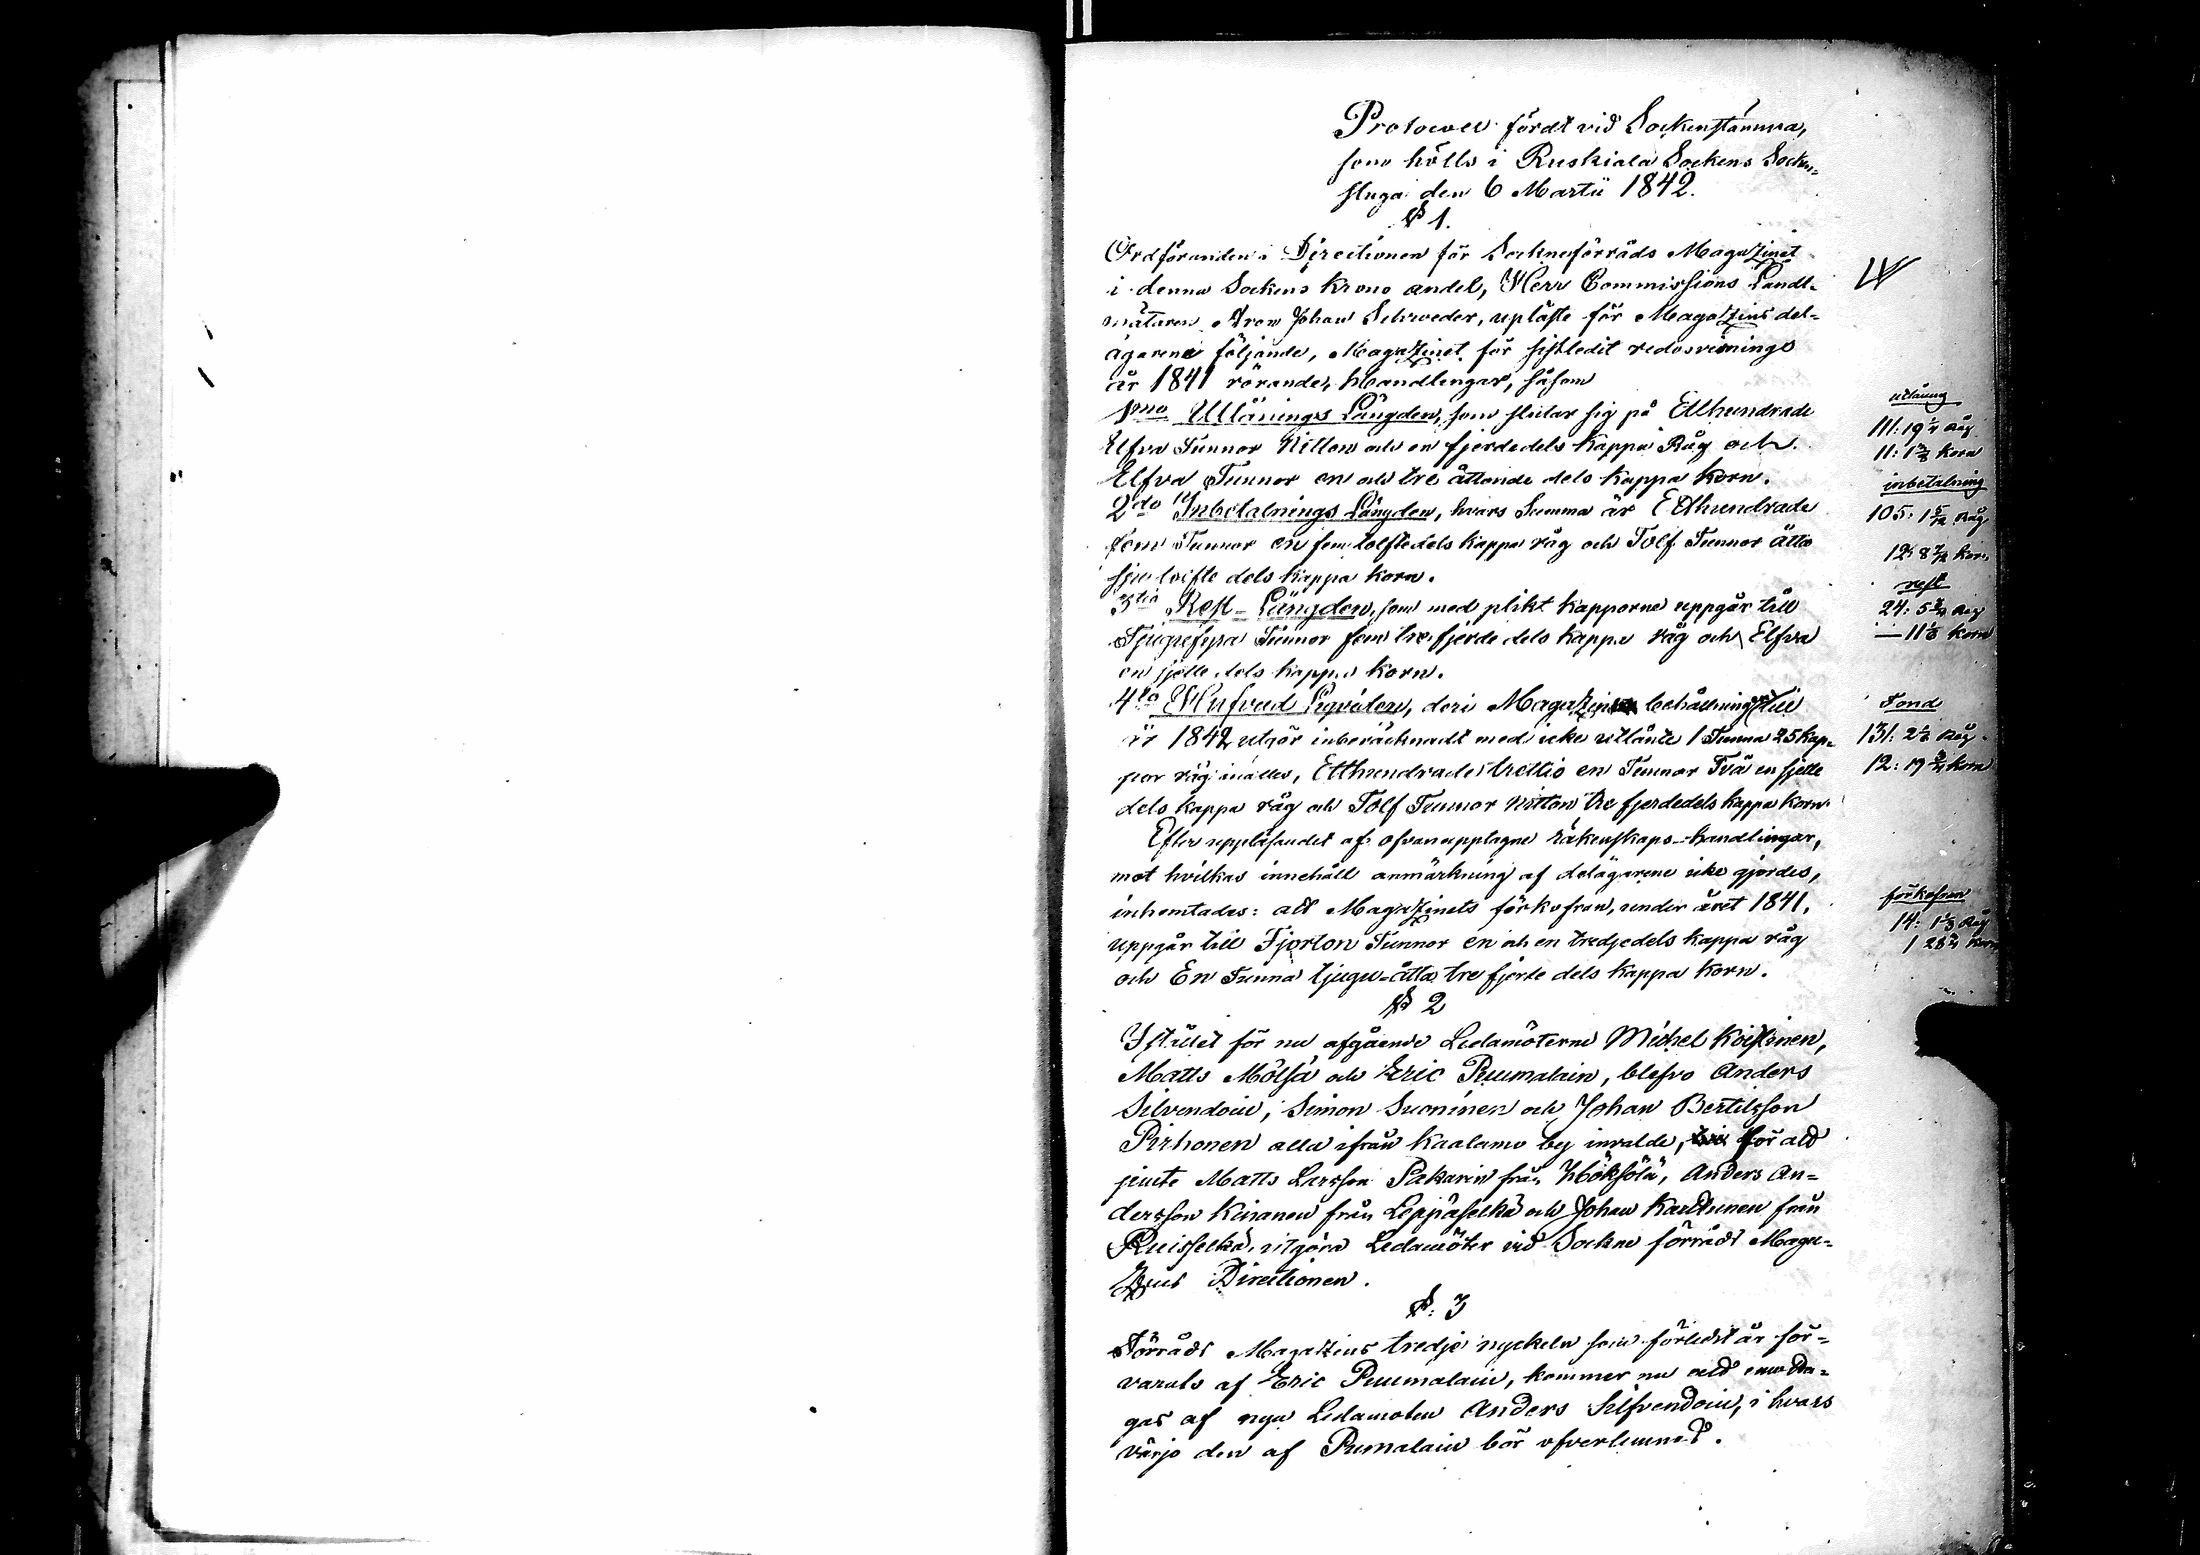 Protocoll fördt vid Sockenstämma,
som hölls i Ruskiala Sockens Socken-
stuga den 6 Martii 1842.
§ 1.
Ordföranden i Directionen för Sockneförråds Magazinet
i denna Sockens Krono andel, Herr Commissions Landt-
mätaren Aron Johan Schroeder, upläste för Magazins del-
ägarene följande, Magazinet för sistledit redovisnings
år 1841 rörande, Handlingar, såsom
1mo Utlånings Längden, som slutar sig på Etthundrade
Elfva Tunnor Nitton och en fjerdedels kappa Råg och
Elfva Tunnor en och tre åttonde dels kappa Korn.
2do Inbetalnings Längden, hvars Summa är Etthundrade
fem Tunnor en fem tolftedels kappa råg och Tolf Tunnor åtta
sju tolfte dels kappa korn.
3tio Rest-Längden, som med plikt kapporne uppgår till
Tjugufyra Tunnor fem tre fjerde dels kappa råg och Elfva
en sjette dels kappa korn.
4to Hufvud Liqviden, deri Magazins behållning till
år 1842 utgör inberäcknadt med icke utlånte 1 Tunna 25 kap-
por råg inalles, Etthundrade trettio en Tunnor Två en sjette
dels kappa råg och Tolf Tunnor nitton tre fjerdedels kappa korn.
Efter uppläsandet af ofvanupptagne räkenskaps-handlingar,
mot hvilkas innehåll anmärkning af delägarene icke gjordes,
inhemtades: att Magazinets förkofran, under året 1841,
uppgår till Fjorton Tunnor en och en tredjedels kappa råg
och En Tunna tjugu-åtta tre fjerde dels kappa korn.
§ 2
I stället för nu afgående Ledamöterne Michel Koistinen,
Matts Mölsä och Eric Puumalain, blefvo Anders
Silvendoin, Simon Suoninen och Johan Bertilsson
Pirhonen alla ifrån Kaalamo by invalde, för att
jemte Matts Larsson Pakarin från Höksölä, Anders An-
dersson Kinanen från Leppäselkä och Johan Karttunen från
Ruisselkä, utgöra Ledamöter vid Sockne förråds Maga-
zins Directionen.
§. 3
Förråds Magazins tredje nyckeln som förledit år för-
varats af Eric Puumalain, kommer nu att emotta-
gas af nya Ledamoten Anders Silfvendoin, i hvars
värjo den af Pumalain bör öfverlemnas.
utlåning
111: 19 1/4 Råg
11: 1 3/8 Korn
inbetalning
105: 1 5/12 Råg
12: 8 7/12 Korn
rest
24: 5 3/4 Råg
— 11 1/6 Korn
Fond
131: 2 1/6 Råg
12: 19 3/4 Korn
förkofran
14: 1 1/3 Råg
1 28 3/4 Korn